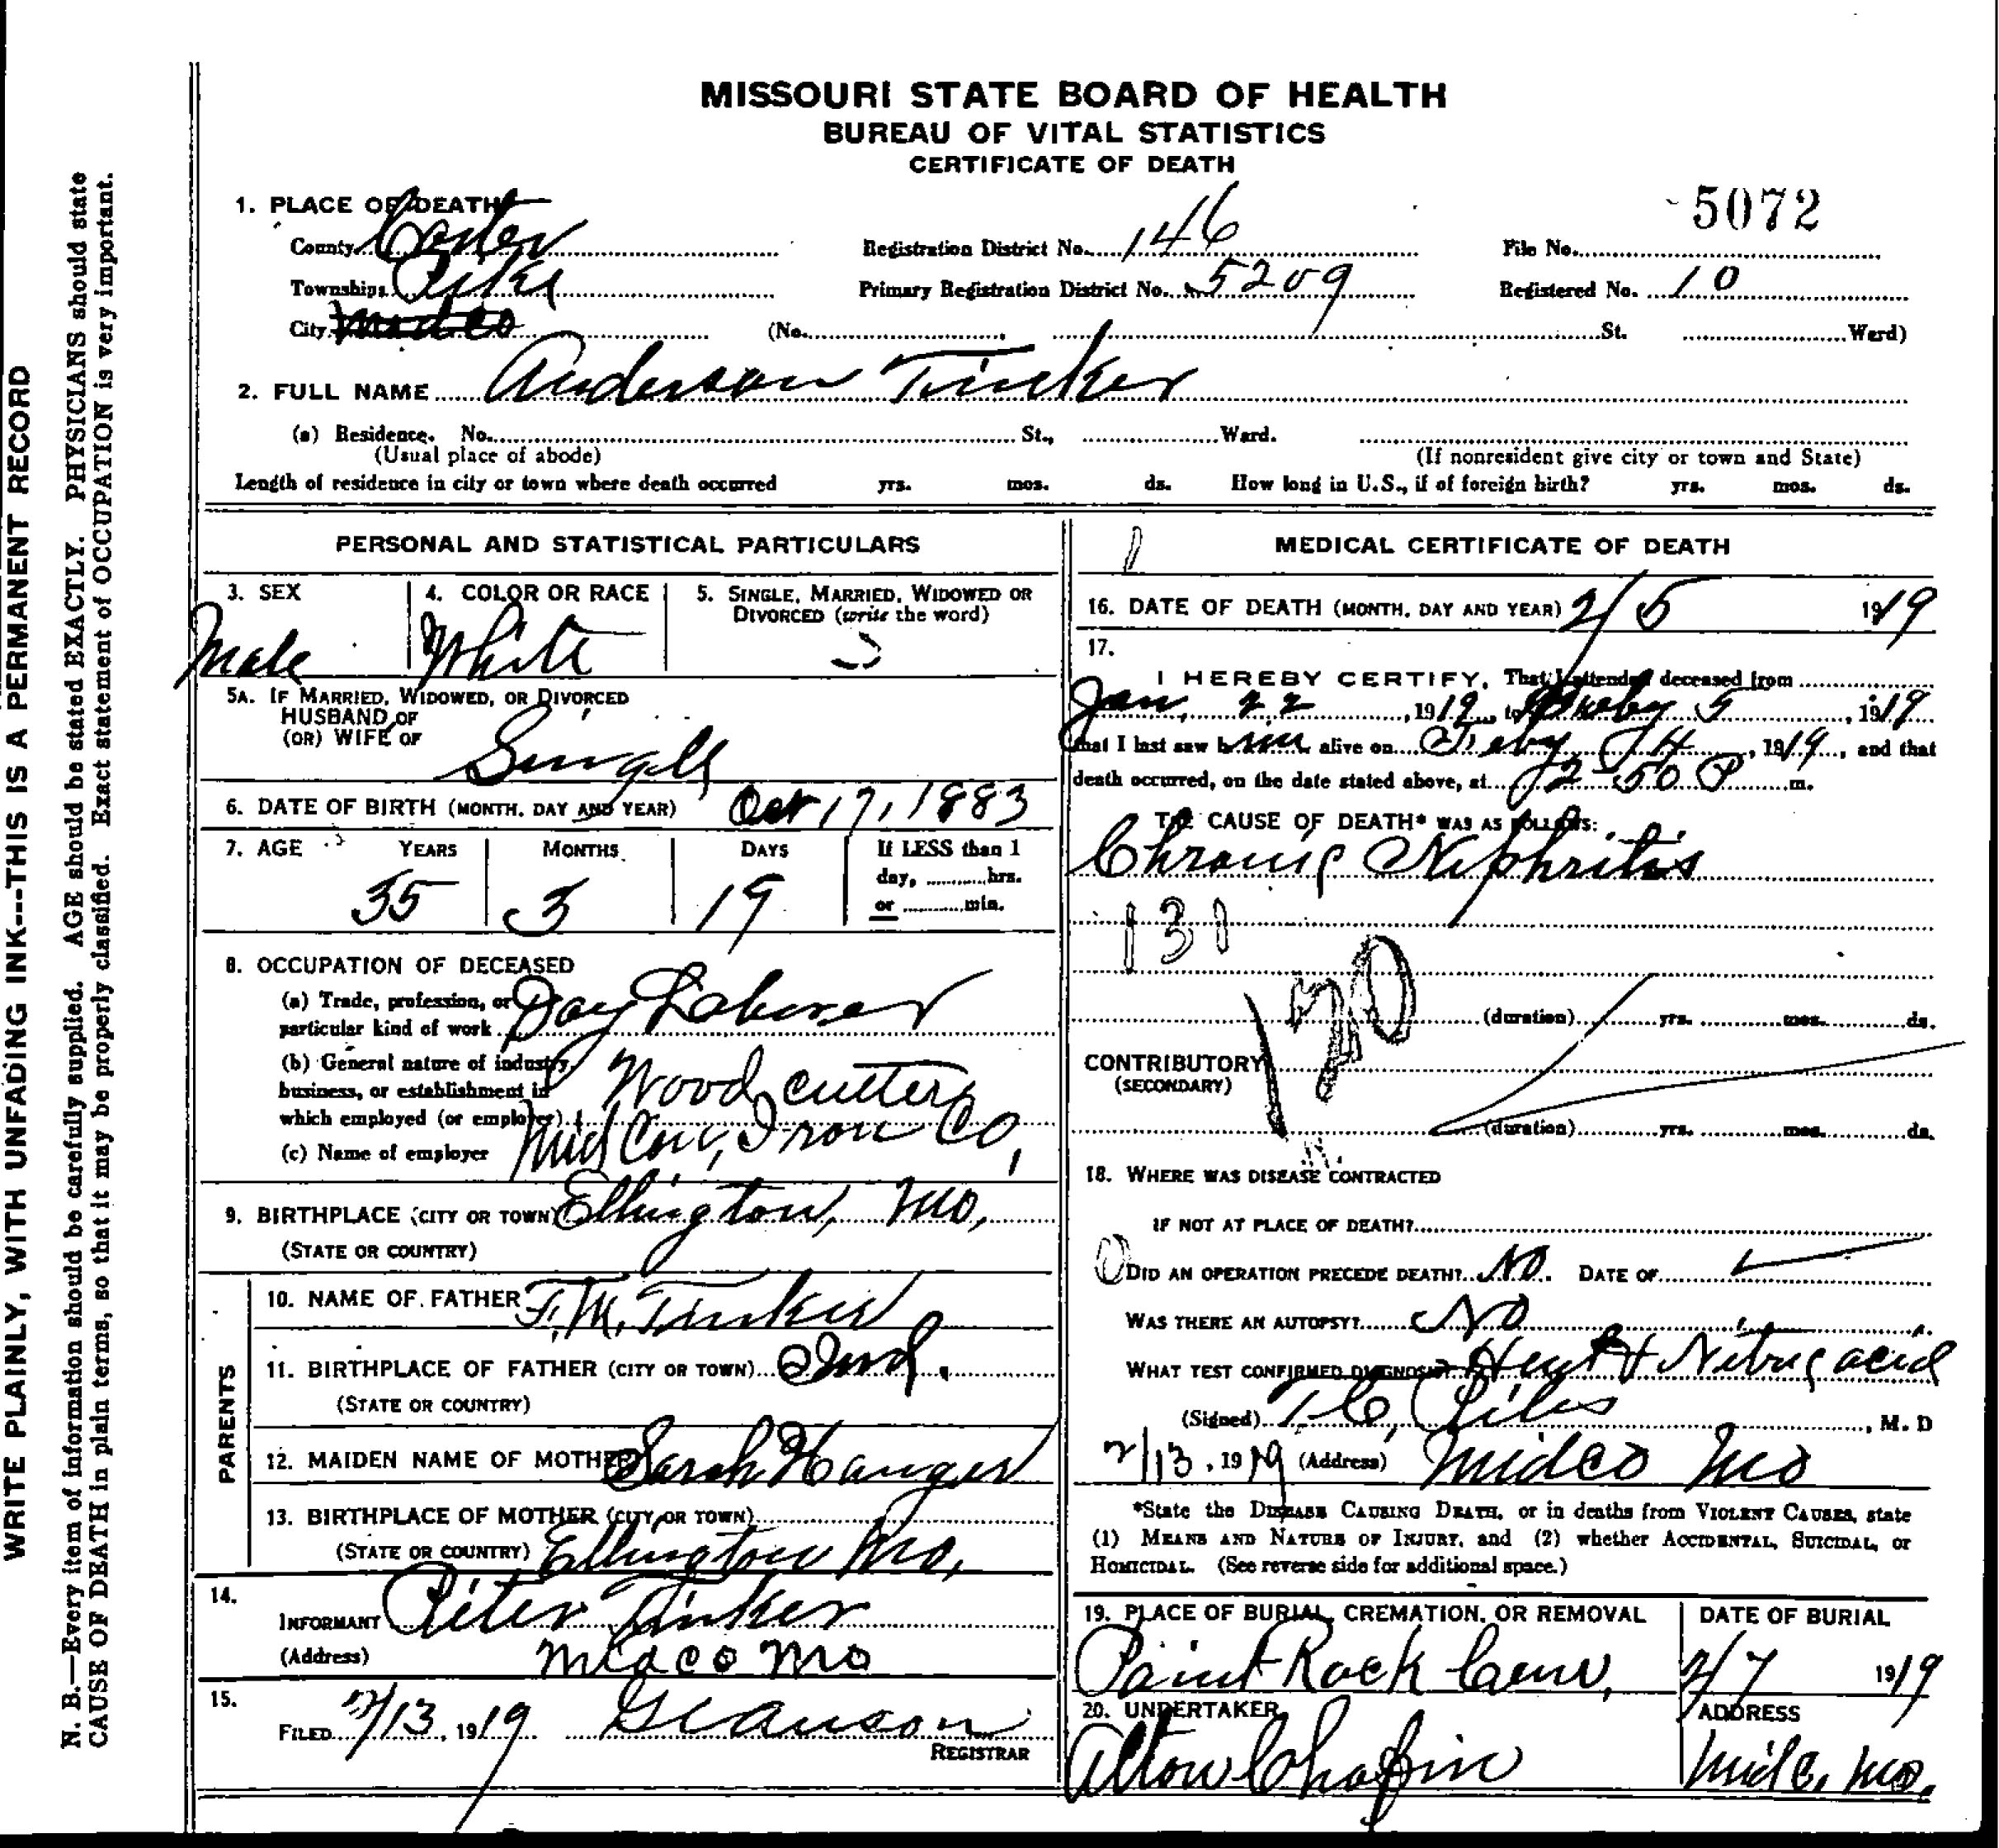 MISSOURI STATE BOARD OF HEALTH
BUREAU OF VITAL STATISTICS
CERTIFICATE OF DEATH
5072
1. PLACE OF DEATH
County Carter Registration District No. 146 File No.
Township Pike Primary Registration District No. 5209 Registered No. 10
City Midco (No. St. Ward)
2. FULL NAME Anderson Tinker
(a) Residence. No. St., Ward.
(Usual place of abode) (If nonresident give city or town and State)
Length of residence in city or town where death occurred yrs. mos. ds. How long in U.S., if of foreign birth? yrs. mos. ds.
PERSONAL AND STATISTICAL PARTICULARS
3. SEX 4. COLOR OR RACE 5. SINGLE, MARRIED, WIDOWED OR
DIVORCED (write the word)
Male White
5A. IF MARRIED, WIDOWED, OR DIVORCED
HUSBAND OF
(OR) WIFE OF
Singll
6. DATE OF BIRTH (MONTH, DAY AND YEAR) Oct 17, 1883
7. AGE YEARS MONTHS DAYS If LESS than 1
day, hrs.
or min.
35 3 19
8. OCCUPATION OF DECEASED
(a) Trade, profession, or
particular kind of work Day Laborer
(b) General nature of industry,
business, or establishment in
which employed (or employer) Wood cutter
(c) Name of employer Mid Con, Iron Co,
9. BIRTHPLACE (CITY OR TOWN) Ellington, Mo,
(STATE OR COUNTRY)
PARENTS
10. NAME OF FATHER F. M. Tinker
11. BIRTHPLACE OF FATHER (CITY OR TOWN) Ind.
(STATE OR COUNTRY)
12. MAIDEN NAME OF MOTHER Sarah Hanger
13. BIRTHPLACE OF MOTHER (CITY OR TOWN)
(STATE OR COUNTRY) Ellington Mo,
14.
INFORMANT Peter Tinker
(Address) Midco Mo
15.
FILED 2/13, 1919
REGISTRAR
MEDICAL CERTIFICATE OF DEATH
16. DATE OF DEATH (MONTH, DAY AND YEAR) 2/5 1919
17.
I HEREBY CERTIFY, That I attended deceased from
Jan, 22, 1919, to Feby 5, 1919
that I last saw him alive on Feby 4, 1919, and that
death occurred, on the date stated above, at 2-50 P m.
THE CAUSE OF DEATH* WAS AS FOLLOWS:
Chronic Nephritis
131
120
(duration) yrs. mos. ds.
CONTRIBUTORY
(SECONDARY)
(duration) yrs. mos. ds.
18. WHERE WAS DISEASE CONTRACTED
IF NOT AT PLACE OF DEATH?
DID AN OPERATION PRECEDE DEATH? No. DATE OF
WAS THERE AN AUTOPSY? No
WHAT TEST CONFIRMED DIAGNOSIS? Heat & Nitric acid
(Signed), M. D
2/13, 1919 (Address) Midco Mo
*State the DISEASE CAUSING DEATH, or in deaths from VIOLENT CAUSES, state
(1) MEANS AND NATURE OF INJURY, and (2) whether ACCIDENTAL, SUICIDAL, or
HOMICIDAL. (See reverse side for additional space.)
19. PLACE OF BURIAL, CREMATION, OR REMOVAL DATE OF BURIAL
Paint Rock Cem, 2/7 1919
20. UNDERTAKER ADDRESS
Alton Chafin Midc, Mo.
WRITE PLAINLY, WITH UNFADING INK---THIS IS A PERMANENT RECORD
N. B.—Every item of information should be carefully supplied. AGE should be stated EXACTLY. PHYSICIANS should state
CAUSE OF DEATH in plain terms, so that it may be properly classified. Exact statement of OCCUPATION is very important.